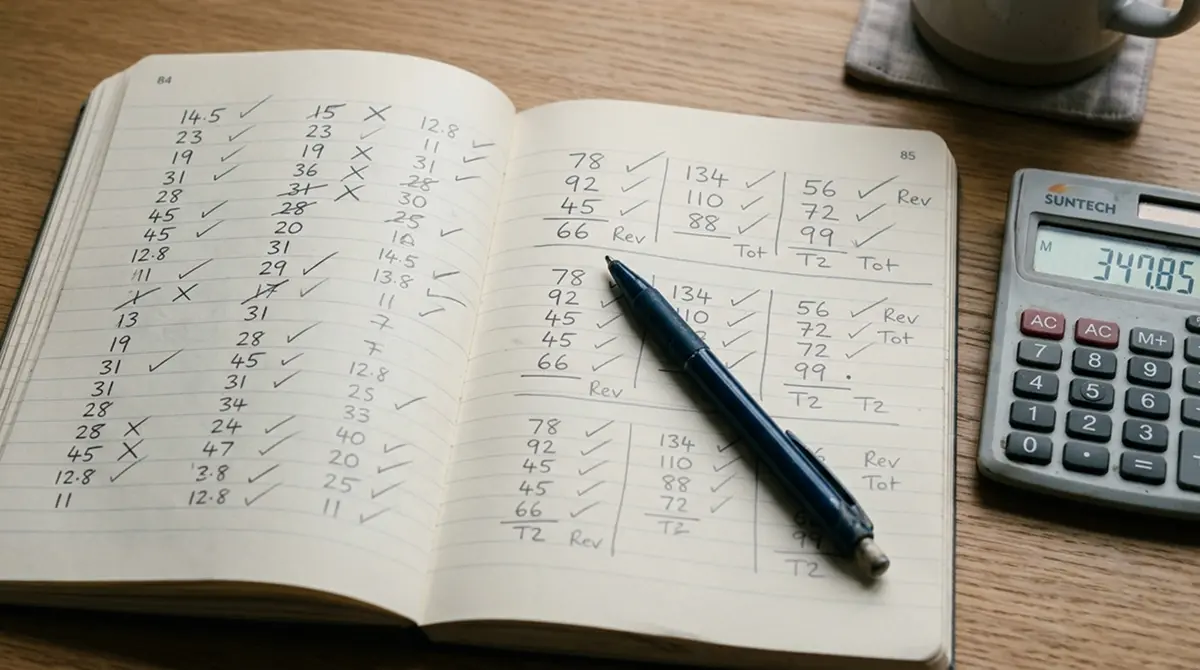 84
14.5 ✓
23 ✓
19 ✓
31 ✓
28
45 ✓
45 ✓
12.8
11 ✓
1 X
13
19
31 ✓
31
28
28 X
45 X
12.8 ✓
11
15 X
23 ✓
19 X
36 X
31 X
28
20
31
29 ✓
17 ✓
31
28 ✓
45 ✓
31 ✓
34
24 ✓
47 ✓
3.8 ✓
12.8 ✓
12.8
11 ✓
31 ✓
28 ✓
30
25
✓
14.5
13.8 ✓
11 ✓
7
7
12.8
25
33 ✓
40
20 ✓
25 ✓
11 ✓
85
78 ✓
92 ✓
45 ✓
66 Rev
134 ✓
110 ✓
88 ✓
Tot
56 ✓ Rev
72 ✓
99 ✓
T2 Tot
78
92 ✓
45 ✓
45 ✓
66 ✓
Rev
134 ✓
✓
✓
✓
56 ✓ Rev
72 ✓ Tot
72 ✓
99 .
T2 T2
78 ✓
92 ✓
45 ✓
45 ✓
66 ✓
T2 Rev
134 ✓
110 ✓
88 ✓
72 ✓
T2
Rev
Tot
T2
SUNTECH
M 347.85
AC AC M+
7 8 9
4 5 6
1 2 3
0 · =